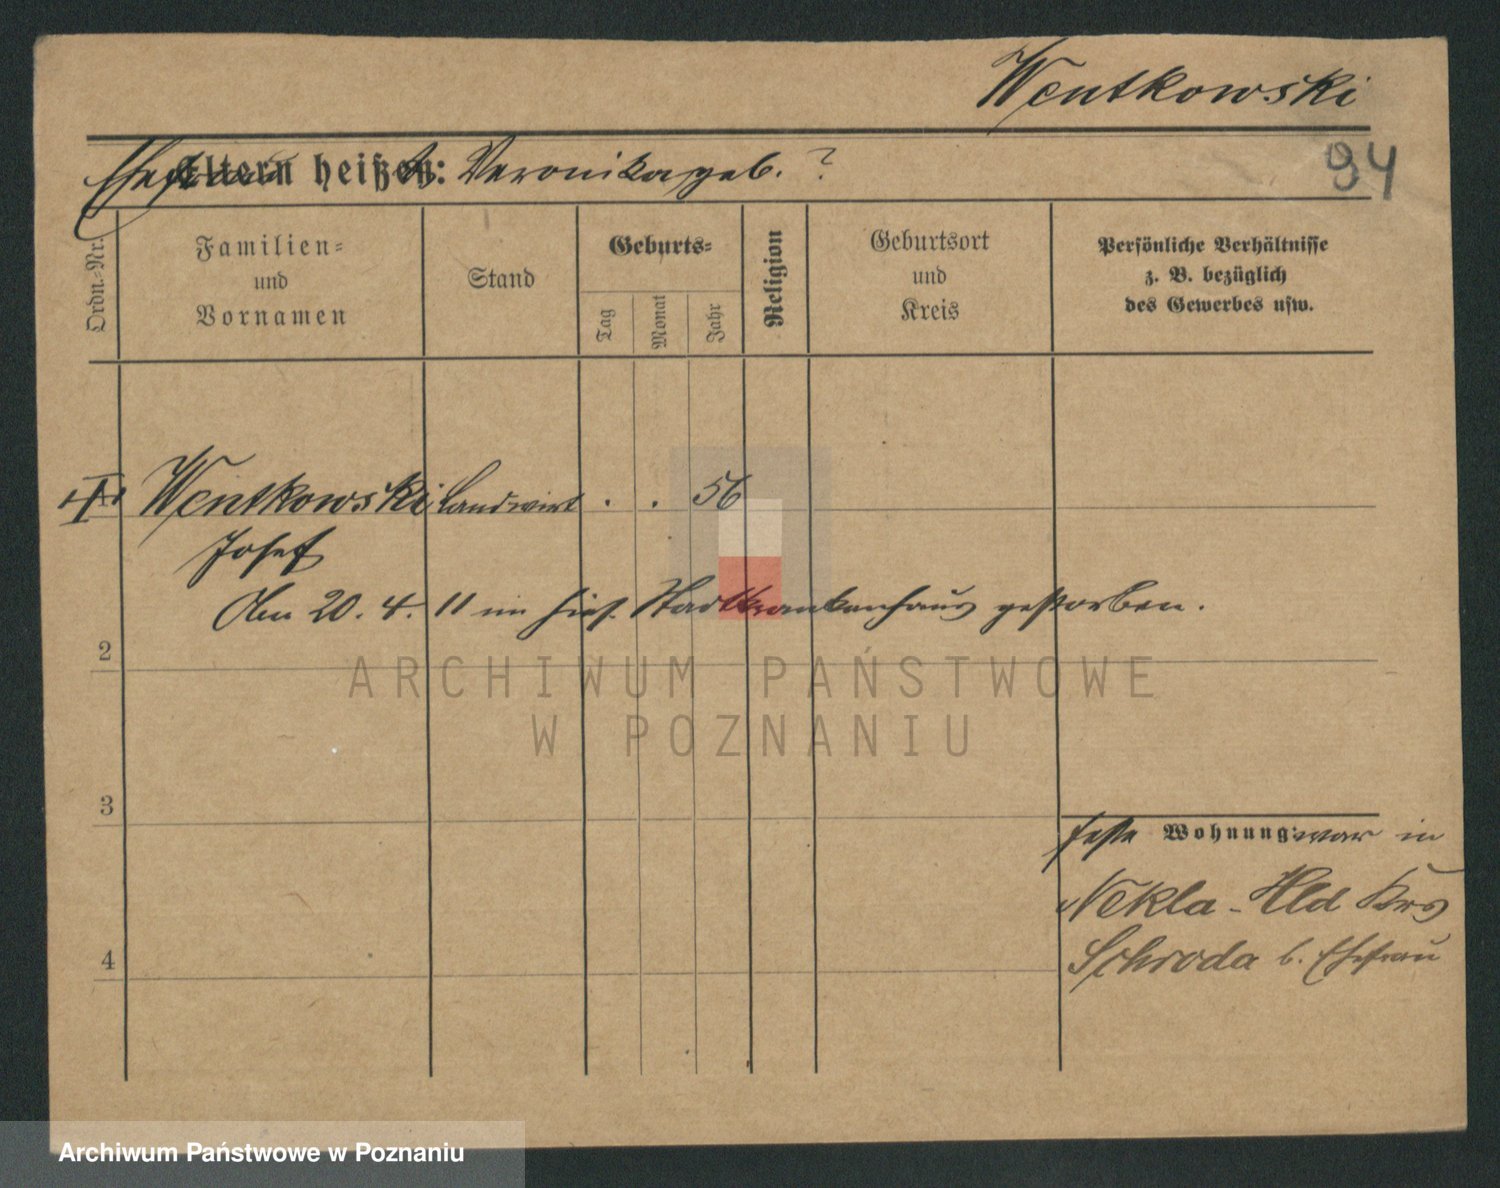 Wentkowski
94
Eltern heißen: Veronika geb. ?
Ordn.-Nr.
Familien-
und
Vornamen
Stand
Geburts-
Tag
Monat
Jahr
Religion
Geburtsort
und
Kreis
Persönliche Verhältnisse
z. B. bezüglich
des Gewerbes usw.
1 Wentkowski Landwirt . . 56
Josef
Am 20. 4. 11 im hies. Stadtkrankenhaus gestorben.
2
3
4
feste Wohnung: war in
Nekla-Hld Krs
Schroda b. Ehefrau
ARCHIWUM PAŃSTWOWE
W POZNANIU
Archiwum Państwowe w Poznaniu